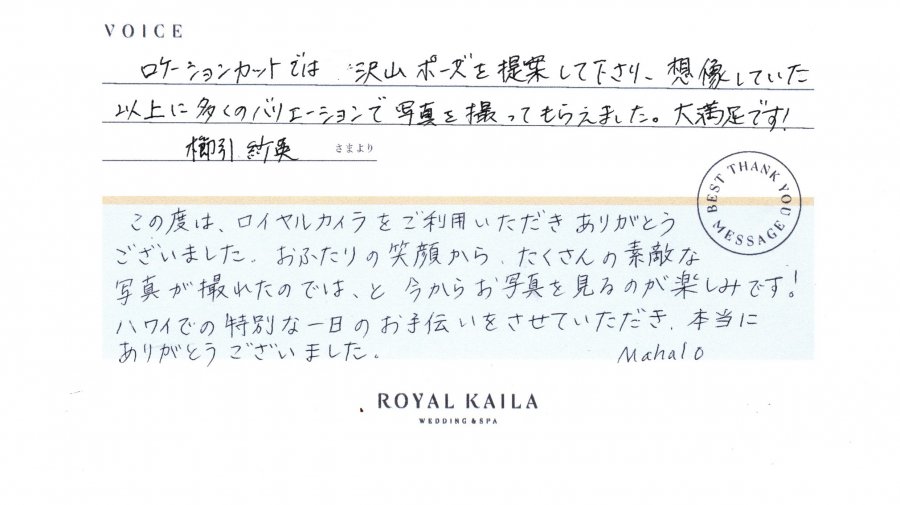 VOICE
ロケーションカットでは、沢山ポーズを提案して下さり、想像していた
以上に多くのバリエーションで写真を撮ってもらえました。大満足です!
櫛引 紗英 さまより
BEST THANK YOU MESSAGE
この度は、ロイヤルカイラをご利用いただきありがとう
ございました。おふたりの笑顔から、たくさんの素敵な
写真が撮れたのでは、と今からお写真を見るのが楽しみです!
ハワイでの特別な一日のお手伝いをさせていただき、本当に
ありがとうございました。 Mahalo
ROYAL KAILA
WEDDING & SPA